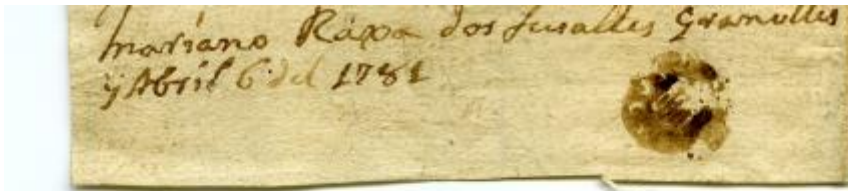 mariano Raxa dos fusalles Granolles
y Abril 6 del 1781